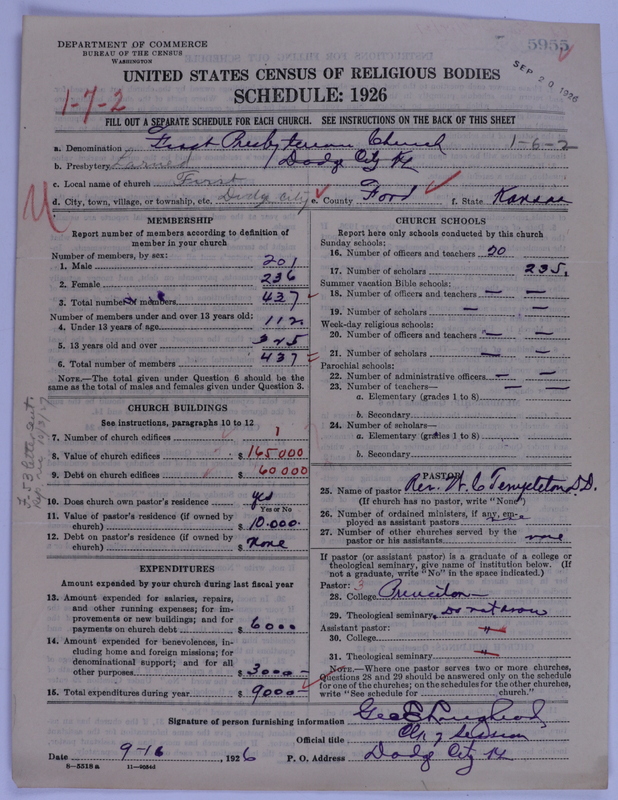 5955
DEPARTMENT OF COMMERCE
BUREAU OF THE CENSUS
WASHINGTON
SEP 20 1926
UNITED STATES CENSUS OF RELIGIOUS BODIES
SCHEDULE: 1926
1-7-2
FILL OUT A SEPARATE SCHEDULE FOR EACH CHURCH. SEE INSTRUCTIONS ON THE BACK OF THIS SHEET
a. Denomination First Presbyterian Church 1-6-2
b. Presbytery Larned Dodge City Ks
c. Local name of church First
d. City, town, village, or township, etc. Dodge City e. County Ford f. State Kansas
MEMBERSHIP
Report number of members according to definition of member in your church
Number of members, by sex:
1. Male 201
2. Female 236
3. Total number members 437
Number of members under and over 13 years old:
4. Under 13 years of age 112
5. 13 years old and over 325
6. Total number of members 437
NOTE.—The total given under Question 6 should be the
same as the total of males and females given under Question 3.
CHURCH BUILDINGS
See instructions, paragraphs 10 to 12
7. Number of church edifices 1
8. Value of church edifices $ 165000
9. Debt on church edifices $ 60000
10. Does church own pastor's residence yes
Yes or No
11. Value of pastor's residence (if owned by
church) $ 10.000.
12. Debt on pastor's residence (if owned by
church) $ none
EXPENDITURES
Amount expended by your church during last fiscal year
13. Amount expended for salaries, repairs,
and other running expenses; for im-
provements or new buildings; and for
payments on church debt $ 6000
14. Amount expended for benevolences, in-
cluding home and foreign missions; for
denominational support; and for all
other purposes $ 3000
15. Total expenditures during year $ 9000
CHURCH SCHOOLS
Report here only schools conducted by this church
Sunday schools:
16. Number of officers and teachers 20
17. Number of scholars 235.
Summer vacation Bible schools:
18. Number of officers and teachers — —
19. Number of scholars — —
Week-day religious schools:
20. Number of officers and teachers — —
21. Number of scholars — —
Parochial schools:
22. Number of administrative officers —
23. Number of teachers— — —
a. Elementary (grades 1 to 8)
b. Secondary
24. Number of scholars—
a. Elementary (grades 1 to 8)
b. Secondary
PASTOR
25. Name of pastor Rev. W. C. Templeton D.D.
(If church has no pastor, write "None")
26. Number of ordained ministers, if any, em-
ployed as assistant pastors none
27. Number of other churches served by the
pastor or his assistants none
If pastor (or assistant pastor) is a graduate of a college or
theological seminary, give name of institution below. (If
not a graduate, write "No" in the space indicated.)
Pastor: 3
28. College Princeton
29. Theological seminary Do not know
Assistant pastor:
30. College "
31. Theological seminary "
NOTE.—Where one pastor serves two or more churches,
Questions 28 and 29 should be answered only on the schedule
for one of the churches; on the schedules for the other churches,
write "See schedule for church."
Signature of person furnishing information Geo E
Official title Clk of Session
Date 9-16, 1926 P. O. Address Dodge City Ks
8—5518a 11—9554d